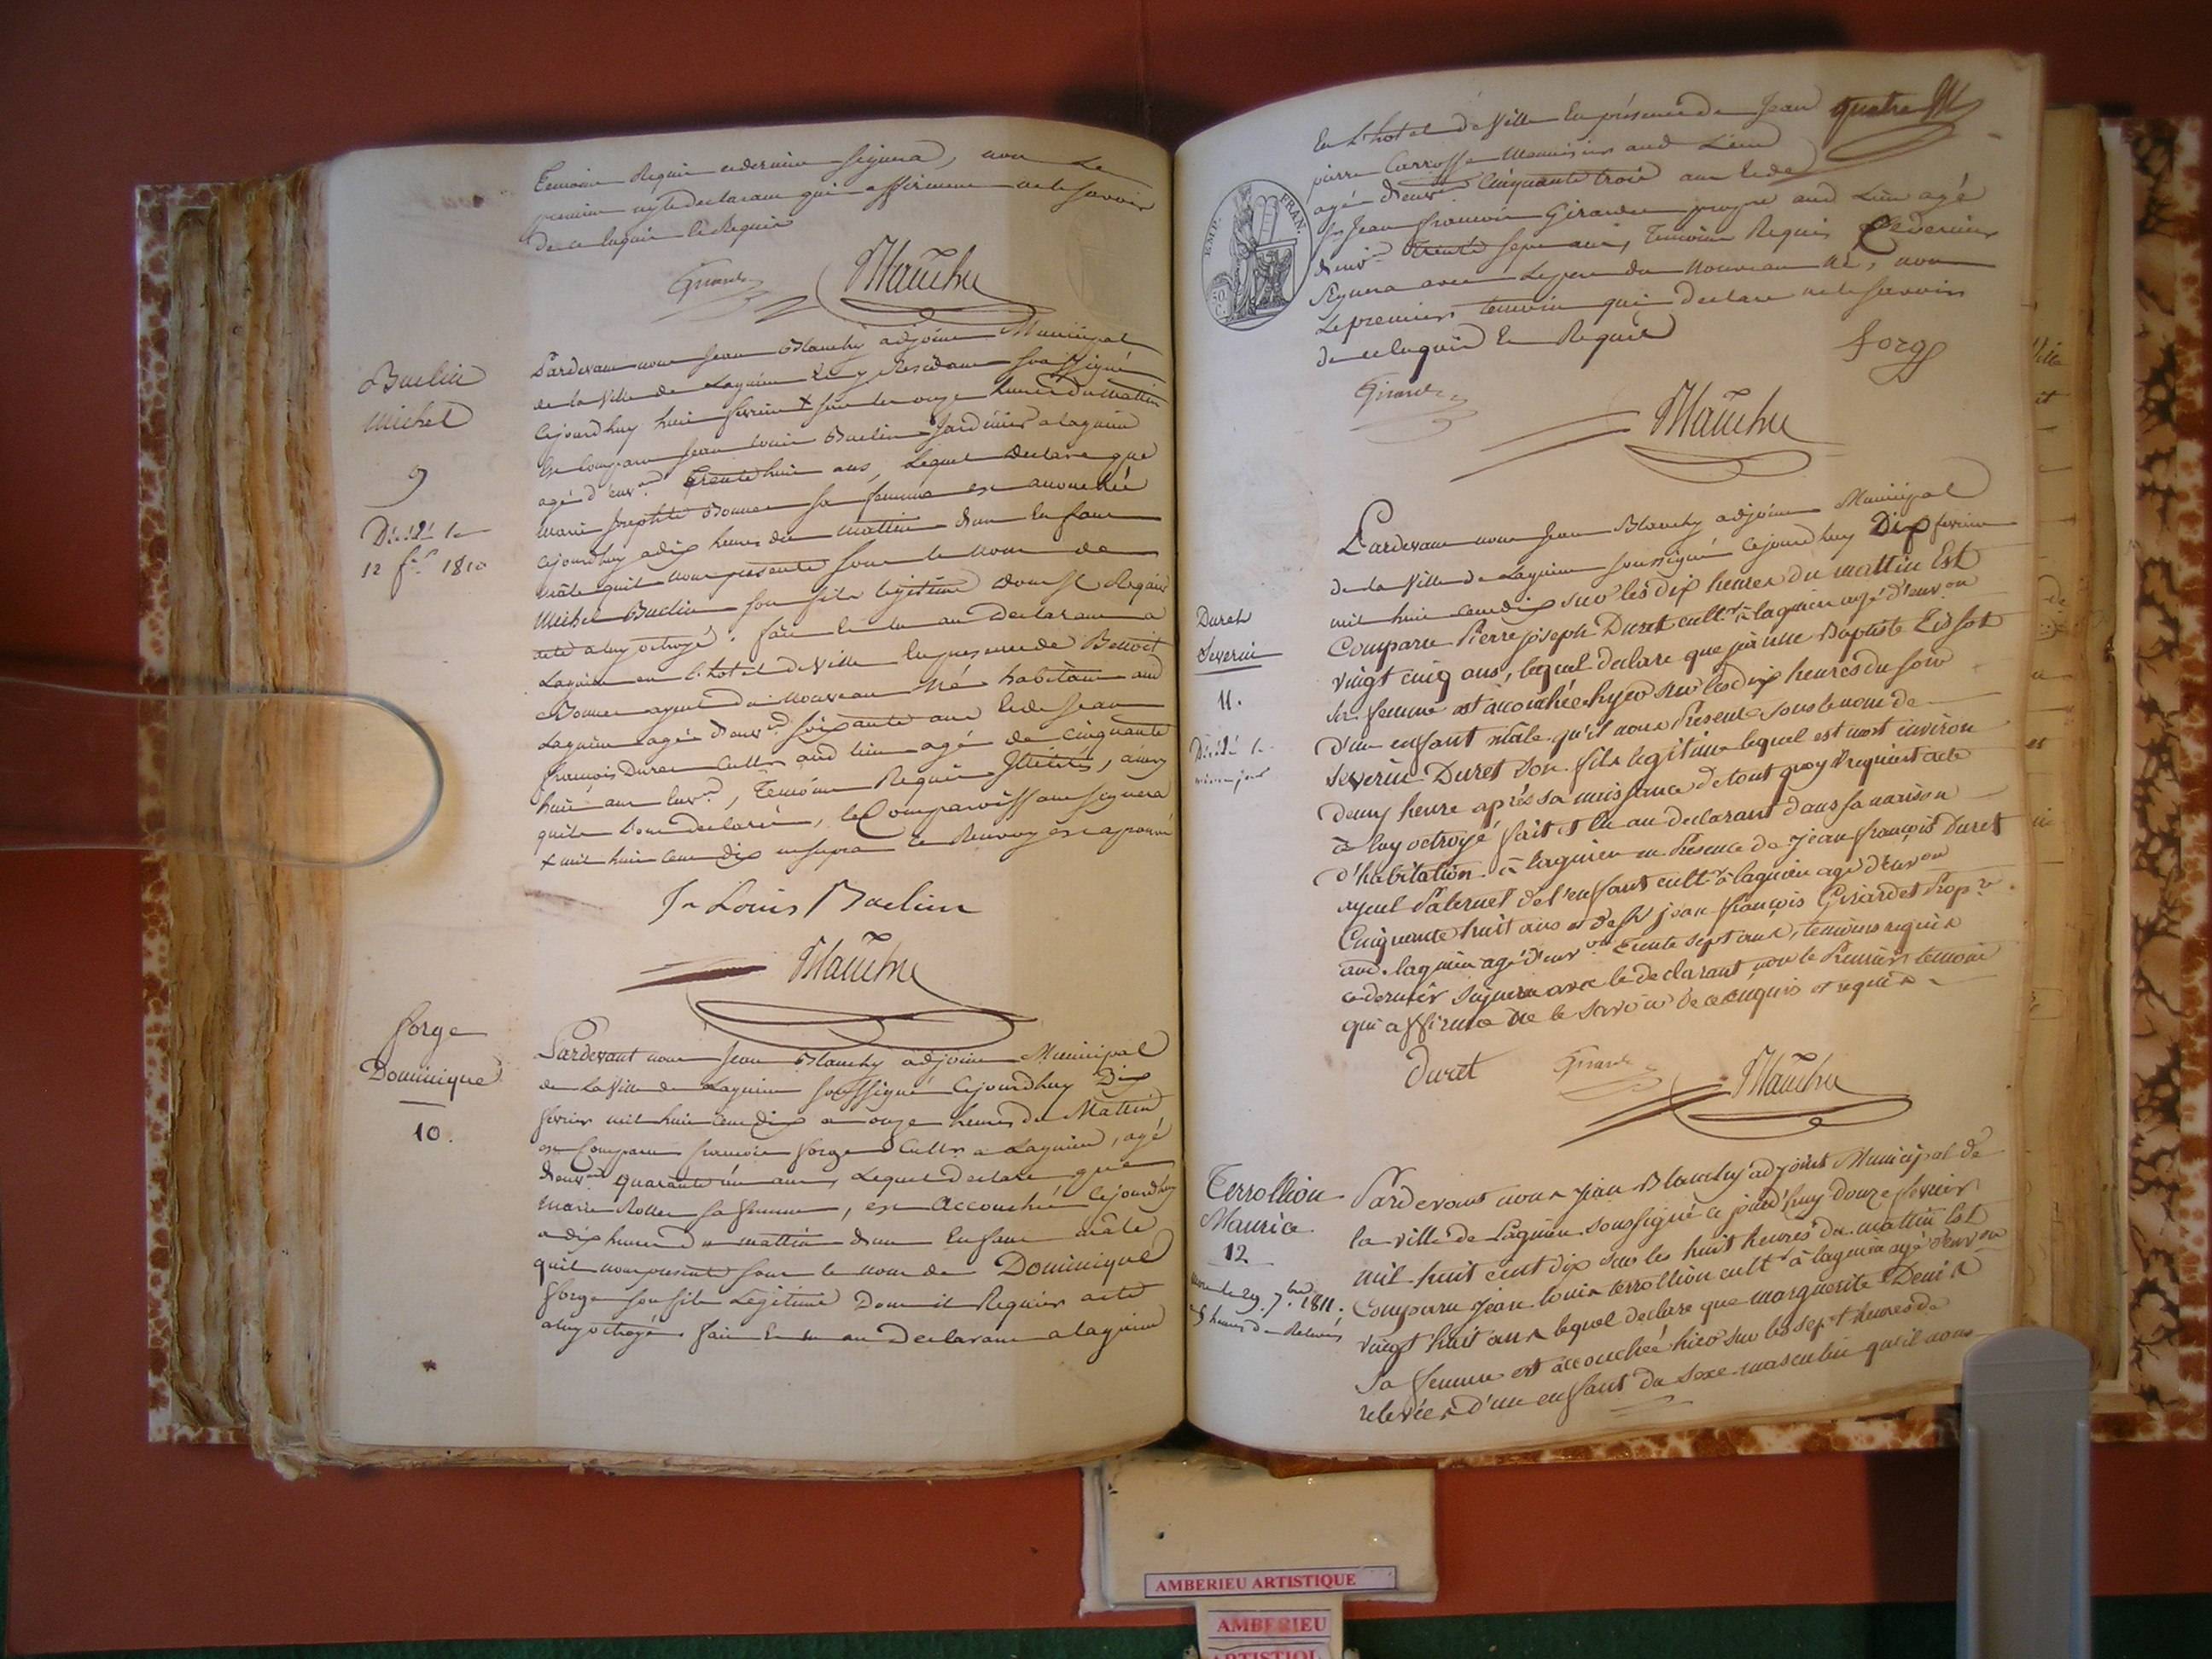 Temoin Requis ce dernier signera, non le
premier ny le declarant qui affirment ne le savoir
de ce Enquis et Requis
Girard
Blanchy
Buclin
Michel
9
Décédé le
12 fer 1810
Pardevant nous Jean Blanchy adjoint Municipal
de la Ville de Lagnieu Soussigné
cejourdhuy huit fevrier + sur les onze heures du mattin
Est Comparu Jean Louis Buclin Jardinier a Lagnieu
agé d'envon Trente huit ans, Lequel declare que
Marie Josephte Bonnet sa femme est accouchée
cejourdhuy a dix heures du mattin d'un Enfant
mâle qu'il nous presente sous le nom de
Michel Buclin son fils legitime dont il Requiert
acte a luy octroyé. fait et lu au Declarant a
Lagnieu en l'hotel de Ville En presence de Benoit
Bonnet ayeul du nouveau né habitant aud
Lagnieu agé d'envon soixante ans et de Jean
François Duret Cultr aud lieu agé de cinquante
huit ans Envon, Temoins Requis Illitérés, ainsy
qu'ils l'ont declaré, le Comparoissant signera
+ mil huit cent dix ce Renvoy est aprouvé
Jn Louis Buclin
Blanchy
Forge
Dominique
10.
Pardevant nous Jean Blanchy adjoint Municipal
de la Ville de Lagnieu soussigné Cejourdhuy Dix
fevrier mil huit cent dix a onze heures du Mattin
est Comparu francois forge Cultr a Lagnieu, agé
d'envon quarante un ans, Lequel declare que
Marie Rollet sa femme, est Accouchée Cejourdhuy
a dix heures du mattin d'un Enfant mâle
qu'il nous presente sous le nom de Dominique
forge son fils Légitime Dont il Requiert acte
a luy octroyé. fait et lu au Declarant a lagnieu
quatre
En l'hotel de Ville En présence de Jean
pierre Carroffe Menuisier aud Lieu
agé d'envon Cinquante trois ans et de
Sr Jean francois Girardet propre aud Lieu agé
d'envon trente sept ans, Temoins Requis Ce dernier
Signera avec Le pere du Nouveau né, non
Le premier temoin qui declare ne le savoir
de ce Enquis Et Requis
EMP. FRAN.
50 C.
forge
Girard
Blanchy
Duret
Severin
11.
Décédé le
même jour
Pardevant nous Jean Blanchy adjoint Municipal
de la Ville de Lagnieu soussigné Cejourdhuy Dix fevrier
mil huit cent dix sur les dix heures du mattin Est
Comparu Pierre joseph Duret cultr à lagnieu agé d'envon
vingt cinq ans, lequel declare que jeanne Baptiste Eidsot
sa femme est accouchée hyer sur les dix heures du soir
d'un enfant mâle qu'il nous Presente sous le nom de
severin Duret son fils legitime lequel est mort environ
demy heure aprés sa naissance de tout quoy il requiert acte
à luy octroyé, fait et lu au declarant dans sa maison
d'habitation à lagnieu en Présence de jean françois Duret
ayeul Paternel de l'enfant cultr à lagnieu agé d'Envon
Cinquante huit ans et de Sr jean françois Girardet Propre
aud. lagnieu agé d'envon trente sept ans, temoins requis
ce dernier signera avec le declarant, non le Premier temoin
qui affirme ne le savoir de ce enquis et requis
duret
Girard
Blanchy
Terrollion
Maurice
12
mort le 29 7bre 1811.
5 heures de Relevée
Pardevant nous jean Blanchy adjoint Municipal de
la ville de Lagnieu soussigné ce jourd'huy douze fevrier
mil huit cent dix sur les huit heures du mattin Est
Comparu jean louis terrollion cultr à lagnieu agé d'envon
vingt huit ans lequel declare que marguerite Denis
sa femme est accouchée hier sur les sept heures de
relevées d'un enfant du sexe masculin qu'il nous
AMBERIEU ARTISTIQUE
AMBERIEU
ARTISTIQ